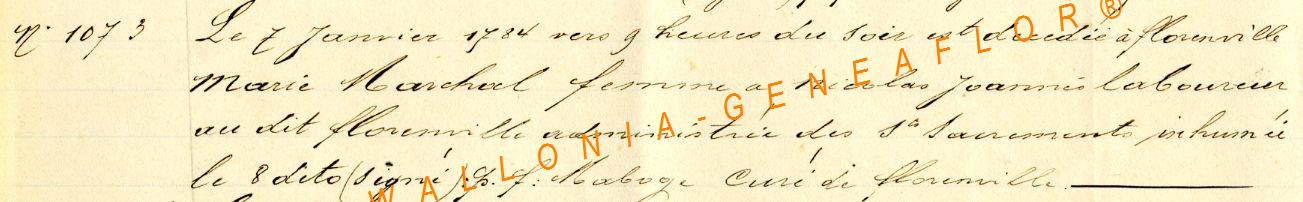 N° 1073 Le 7 Janvier 1784 vers 9 heures du soir est décédée à florenville
Marie Marchal femme a nicolas Joannès laboureur
au dit florenville administrée des Sts Sacrements, inhumée
le 8 dito (signé): f: Maboge Curé de florenville.
WALLONIA-GENEAFLOR®